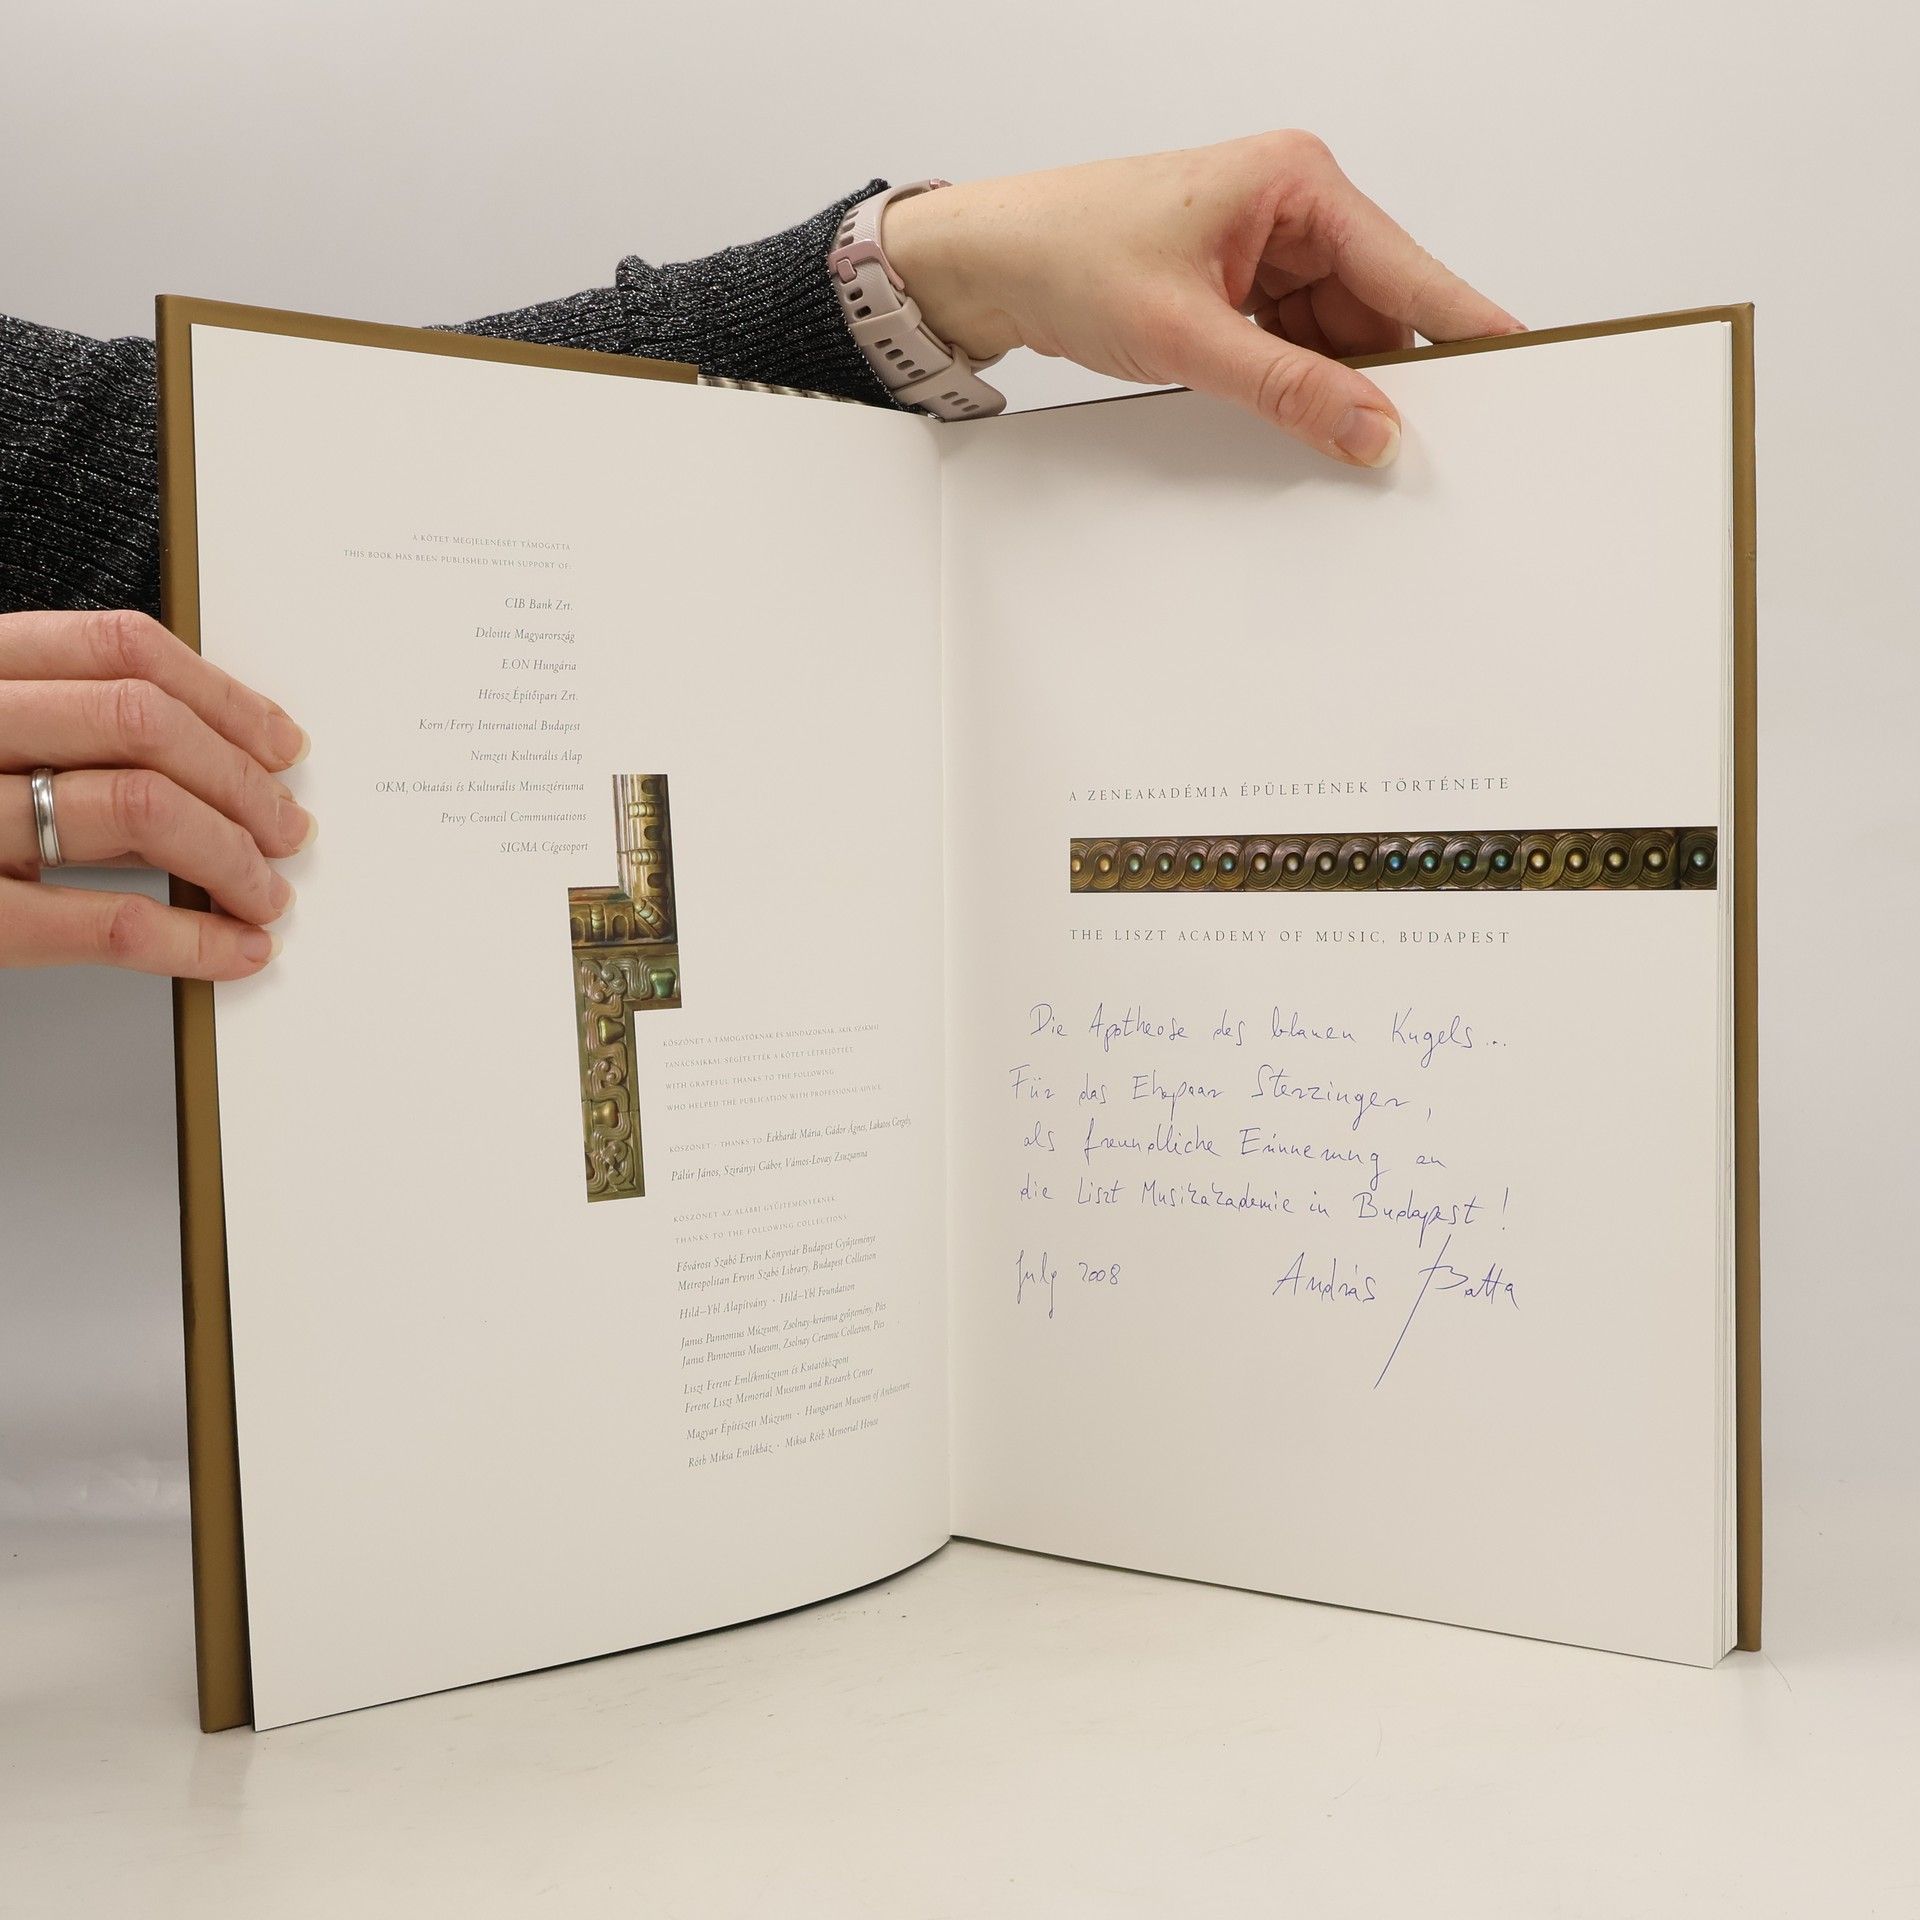 A KÖTET MEGJELENÉSÉT TÁMOGATTA
THIS BOOK HAS BEEN PUBLISHED WITH SUPPORT OF:
CIB Bank Zrt.
Deloitte Magyarország
E.ON Hungária
Hérosz Építőipari Zrt.
Korn/Ferry International Budapest
Nemzeti Kulturális Alap
OKM, Oktatási és Kulturális Minisztériuma
Privy Council Communications
SIGMA Cégcsoport
KÖSZÖNET A TÁMOGATÓKNAK ÉS MINDAZOKNAK, AKIK SZAKMAI
TANÁCSAIKKAL SEGÍTETTÉK A KÖTET LÉTREJÖTTÉT
WITH GRATEFUL THANKS TO THE FOLLOWING
WHO HELPED THE PUBLICATION WITH PROFESSIONAL ADVICE
KÖSZÖNET · THANKS TO Eckhardt Mária, Gádor Ágnes, Lakatos Gergely,
Pálúr János, Szirányi Gábor, Vámos-Lovay Zsuzsanna
KÖSZÖNET AZ ALÁBBI GYŰJTEMÉNYEKNEK
THANKS TO THE FOLLOWING COLLECTIONS
Fővárosi Szabó Ervin Könyvtár Budapest Gyűjteménye
Metropolitan Ervin Szabó Library, Budapest Collection
Hild–Ybl Alapítvány · Hild–Ybl Foundation
Janus Pannonius Múzeum, Zsolnay-kerámia gyűjtemény, Pécs
Janus Pannonius Museum, Zsolnay Ceramic Collection, Pécs
Liszt Ferenc Emlékmúzeum és Kutatóközpont
Ferenc Liszt Memorial Museum and Research Center
Magyar Építészeti Múzeum · Hungarian Museum of Architecture
Róth Miksa Emlékház · Miksa Róth Memorial House
A ZENEAKADÉMIA ÉPÜLETÉNEK TÖRTÉNETE
THE LISZT ACADEMY OF MUSIC, BUDAPEST
Die Apotheose des blauen Kugels...
Für das Ehepaar Sterzinger,
als freundliche Erinnerung an
die Liszt Musikakademie in Budapest!
July 2008 András Batta